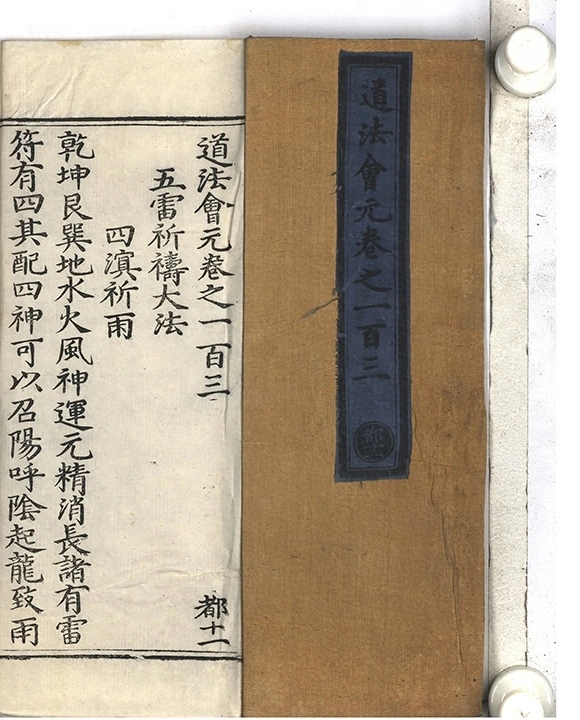 道法會元卷之一百三
都十一
道法會元卷之一百三
都十一
五雷祈禱大法
四濵祈雨
乾坤艮巽地水火風神運元精消長諸有雷
符有四其配四神可以召陽呼陰起龍致雨